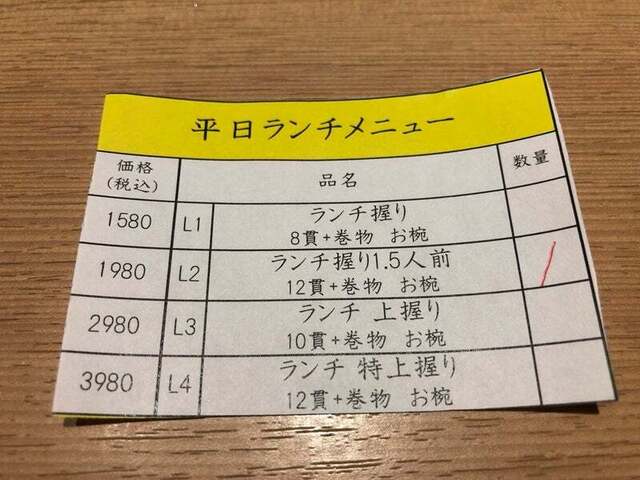 平日ランチメニュー
価格 (税込) 品名 数量
1580 L1 ランチ握り
8貫+巻物 お椀
1980 L2 ランチ握り1.5人前
12貫+巻物 お椀
2980 L3 ランチ 上握り
10貫+巻物 お椀
3980 L4 ランチ 特上握り
12貫+巻物 お椀